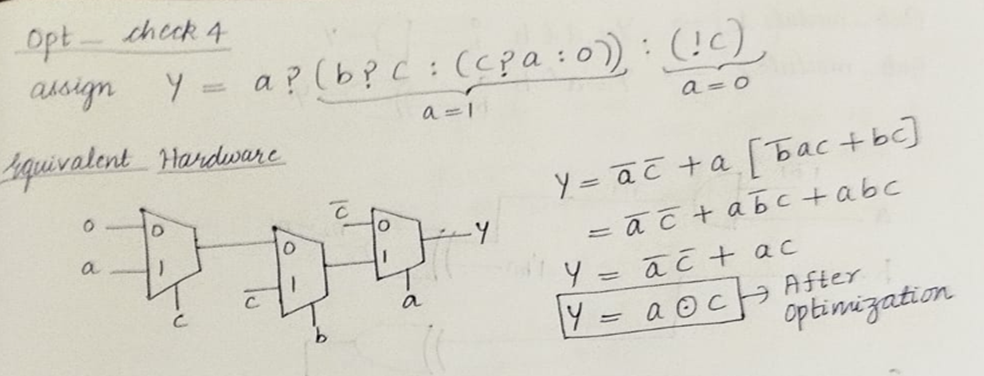 Opt_ check 4
assign Y = a ? (b ? c : (c ? a : 0)) : (!c)
a = 1
a = 0
Equivalent Hardware
0
0
a
1
c
0
c̅
1
b
c̅
0
1
a
Y
Y = a̅ c̅ + a [b̅ac + bc]
= a̅ c̅ + a b̅ c + abc
Y = a̅ c̅ + ac
Y = a ⊙ c → After
optimization